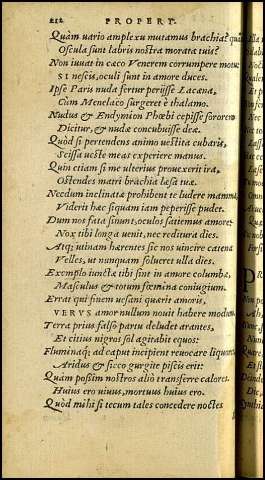 212 PROPERT.
Quàm vario amplexu mutamus brachia? quàm
Oscula sunt labris nostra morata tuis?
Non iuuat in cæco Venerem corrumpere motu:
SI nescis, oculi sunt in amore duces.
Ipse Paris nuda fertur periisse Lacæna,
Cùm Menelaeo surgeret è thalamo.
Nudus & Endymion Phœbi cepisse sororem
Dicitur, & nudæ concubuisse deæ.
Quòd si pertendens animo vestita cubaris,
Scissa veste meas experiere manus.
Quin etiam si me vlterius prouexerit ira,
Ostendes matri brachia læsa tuæ.
Necdum inclinatæ prohibent te ludere mammæ,
Viderit hæc siquam iam peperisse pudet.
Dum nos fata sinunt, oculos satiemus amore:
Nox tibi longa venit, nec reditura dies.
Atq; vtinam hærentes sic nos vincire catena
Velles, vt nunquam solueret vlla dies.
Exemplo iunctæ tibi sint in amore columbæ,
Masculus & totum fœmina coniugium.
Errat qui finem vesani quærit amoris,
VERVS amor nullum nouit habere modum.
Terra prius falso partu deludet arantes,
Et citius nigros sol agitabit equos:
Fluminaq; ad caput incipient reuocare liquores,
Aridus & sicco gurgite piscis erit:
Quàm possim nostros aliò transferre calores.
Huius ero viuus, mortuus huius ero.
Quòd mihi si tecum tales concedere noctes